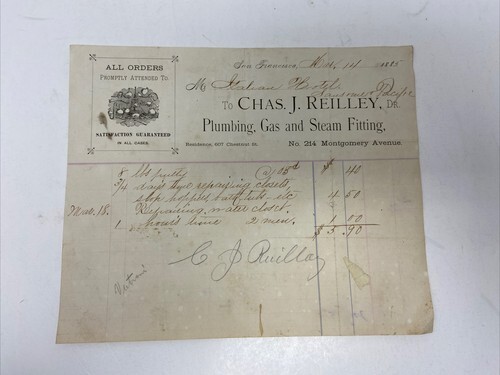 ALL ORDERS
PROMPTLY ATTENDED TO
SATISFACTION GUARANTEED
IN ALL CASES.
San Francisco, 14 1885
M Italian Hotel
Sansome &
TO CHAS. J. REILLEY, DR.
Plumbing, Gas and Steam Fitting,
Residence, 607 Chestnut St. No. 214 Montgomery Avenue.
8 lbs putty @ 05d $ 40
3/4 days time repairing closets,
slop hoppers, bath tubs etc 4 50
Mar. 18. Repairing water closet.
1 hour's time 2 men. 1 00
$ 5.90
C J Reilley